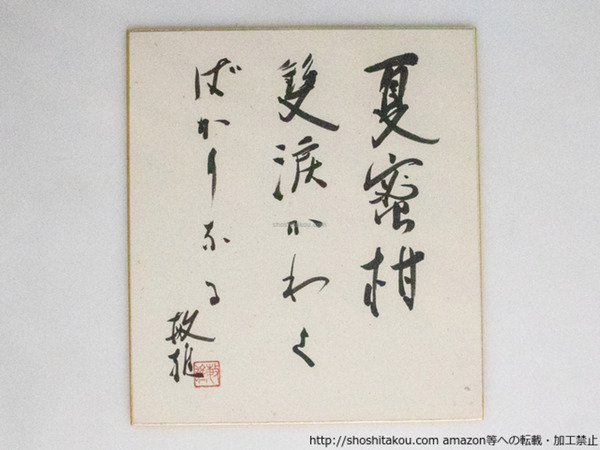 夏蜜柑
雙涙かわく
ばかりなる
敏雄
http://shoshitakou.com amazon等への転載・加工禁止